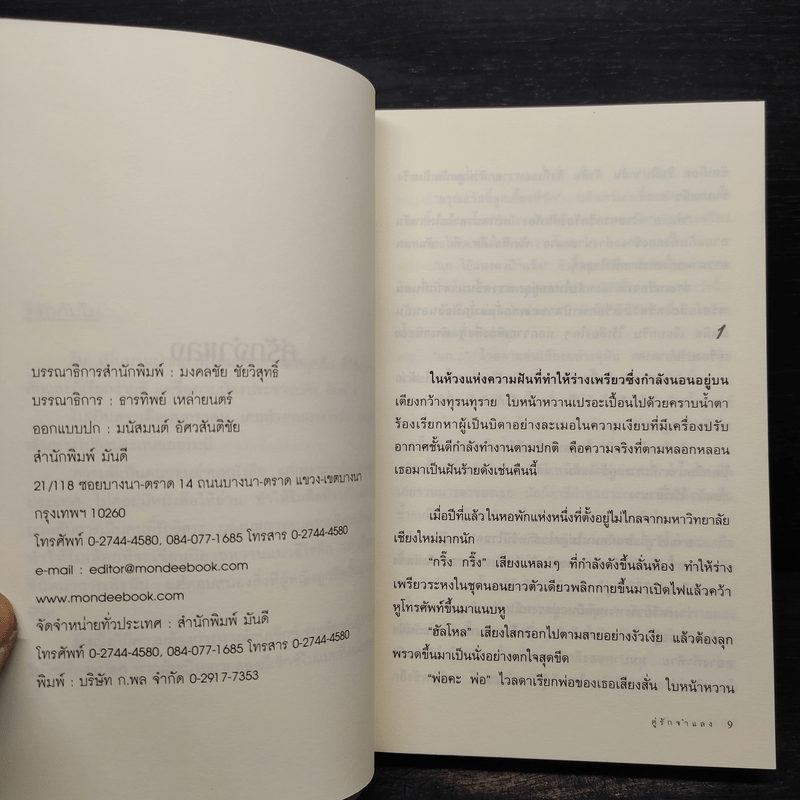 บรรณาธิการสำนักพิมพ์ : มงคลชัย ชัยวิสุทธิ์
บรรณาธิการ : ธารทิพย์ เหล่ายนตร์
ออกแบบปก : มนัสมนต์ อัศวสันติชัย
สำนักพิมพ์ มันดี
21/118 ซอยบางนา-ตราด 14 ถนนบางนา-ตราด แขวง-เขตบางนา
กรุงเทพฯ 10260
โทรศัพท์ 0-2744-4580, 084-077-1685 โทรสาร 0-2744-4580
e-mail : editor@mondeebook.com
www.mondeebook.com
จัดจำหน่ายทั่วประเทศ : สำนักพิมพ์ มันดี
โทรศัพท์ 0-2744-4580, 084-077-1685 โทรสาร 0-2744-4580
พิมพ์ : บริษัท ก.พล จำกัด 0-2917-7353
1
ในห้วงแห่งความฝันที่ทำให้ร่างเพรียวซึ่งกำลังนอนอยู่บน
เตียงกว้างทุรนทุราย ใบหน้าหวานเปรอะเปื้อนไปด้วยคราบน้ำตา
ร้องเรียกหาผู้เป็นบิดาอย่างละเมอในความเงียบที่มีเครื่องปรับ
อากาศชั้นดีกำลังทำงานตามปกติ คือความจริงที่ตามหลอกหลอน
เธอมาเป็นฝันร้ายดังเช่นคืนนี้
เมื่อปีที่แล้วในหอพักแห่งหนึ่งที่ตั้งอยู่ไม่ไกลจากมหาวิทยาลัย
เชียงใหม่มากนัก
“กริ๊ง กริ๊ง” เสียงแหลมๆ ที่กำลังดังขึ้นลั่นห้อง ทำให้ร่าง
เพรียวระหงในชุดนอนยาวตัวเดียวพลิกกายขึ้นมาเปิดไฟแล้วคว้า
หูโทรศัพท์ขึ้นมาแนบหู
“ฮัลโหล” เสียงใสกรอกไปตามสายอย่างงัวเงีย แล้วต้องลุก
พรวดขึ้นมาเป็นนั่งอย่างตกใจสุดขีด
“พ่อคะ พ่อ” ไวลดาเรียกพ่อของเธอเสียงสั่น ใบหน้าหวาน
คู่รักจำแลง 9